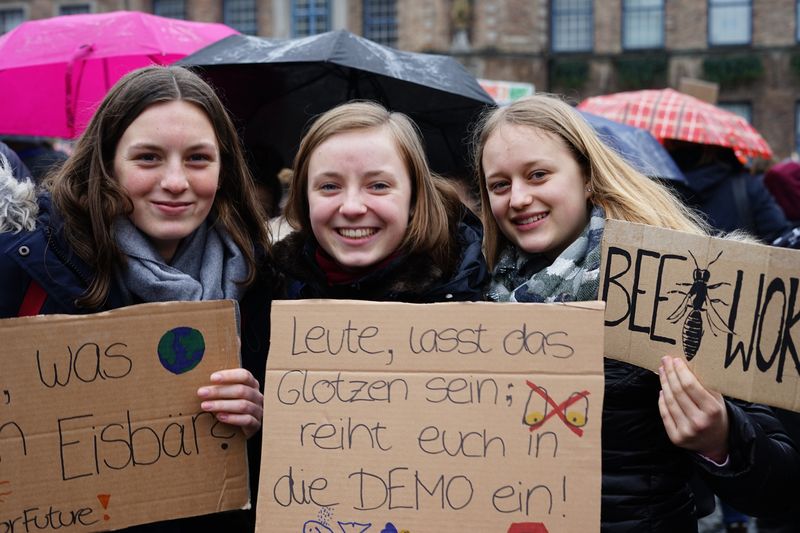 , was
Eisbär?
orFuture!
Leute, lasst das
Glotzen sein;
reiht euch in
die DEMO ein!
BEE WOK